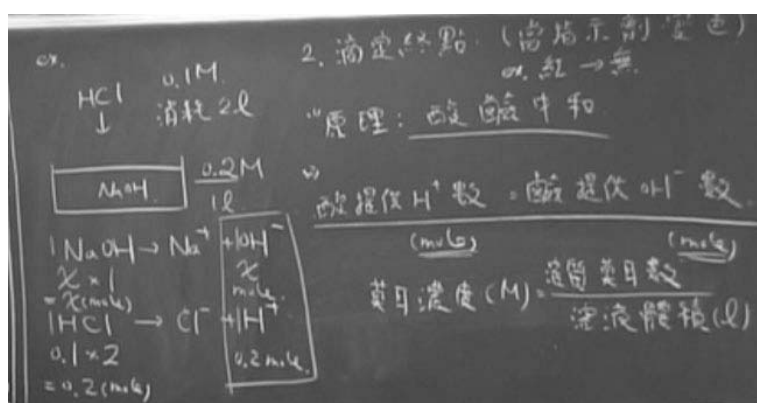 ex.
HCl 0.1M
↓ 消耗 2l
NaOH 0.2M
1l
1NaOH → Na⁺ + 1OH⁻
x × 1 x
= x(mole) mole
1HCl → Cl⁻ + 1H⁺
0.1 × 2 0.2 mole
= 0.2 (mole)
2. 滴定終點 (當指示劑變色)
ex. 紅 → 無
原理: 酸鹼中和
酸提供 H⁺ 數 = 鹼提供 OH⁻ 數
(mole) (mole)
莫耳濃度(M) = 溶質莫耳數
溶液體積(l)